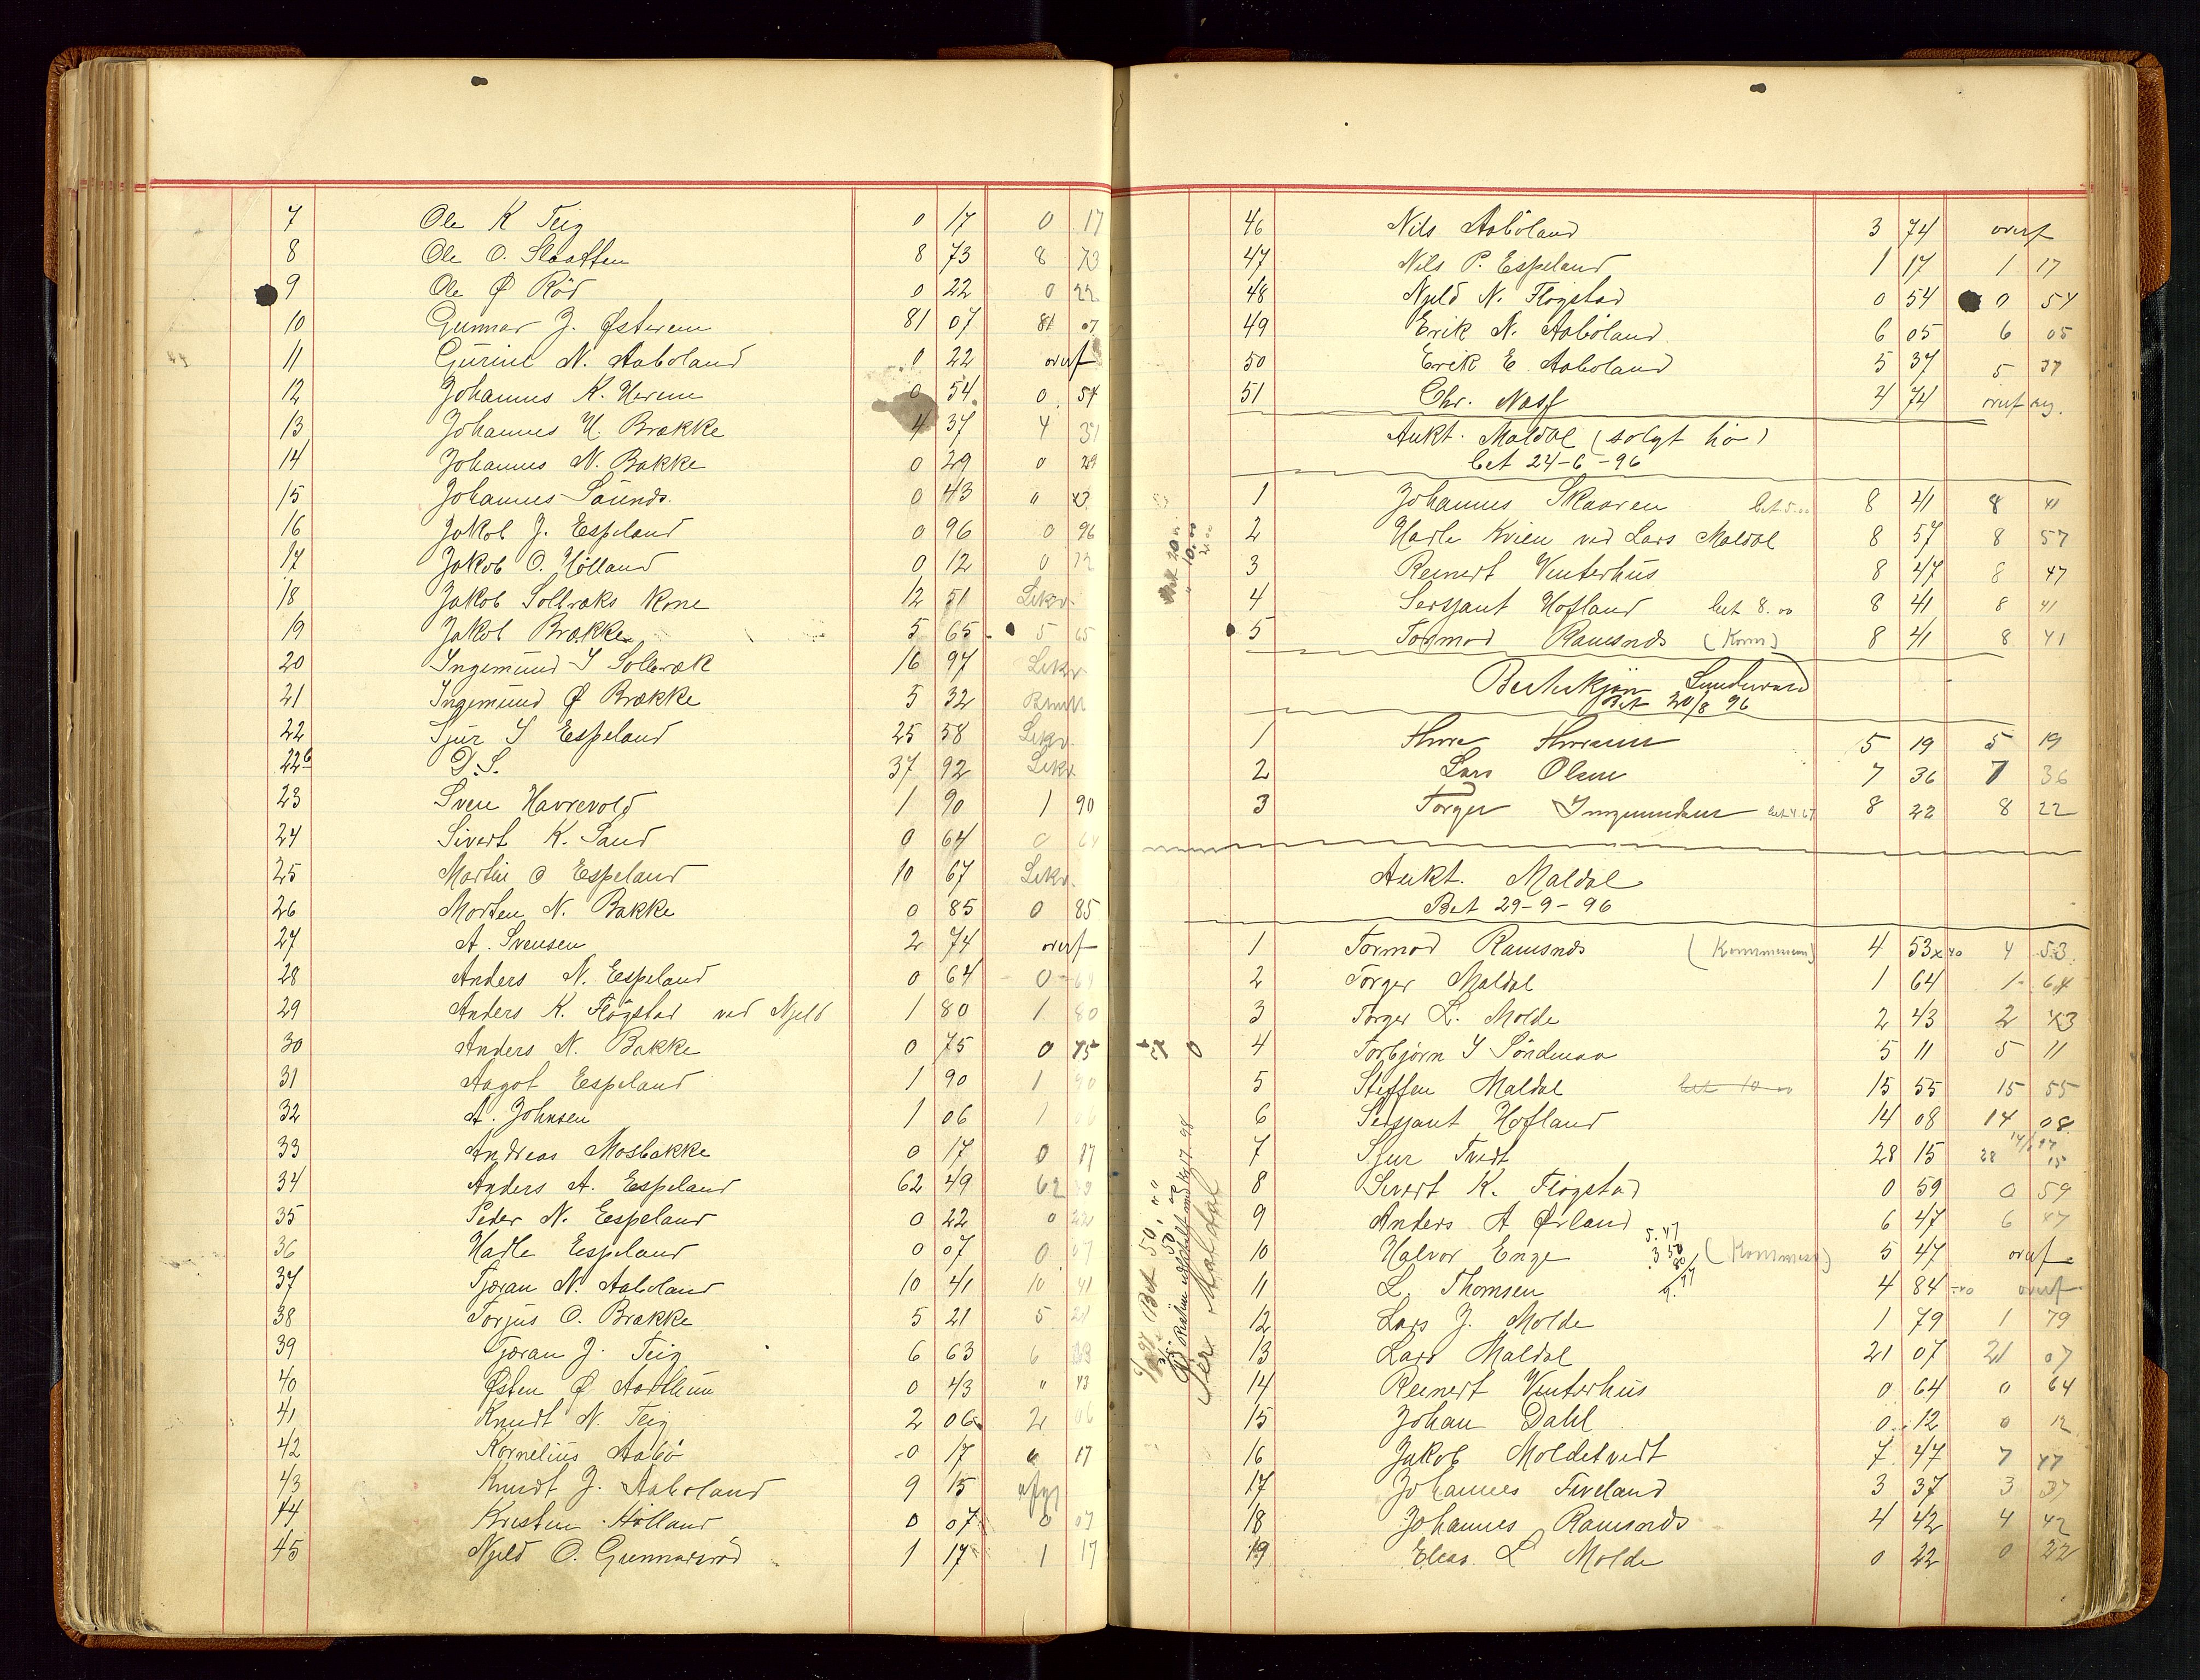 7 Ole K Teig 0 17 0 17
8 Ole O. Slaatten 8 73 8 73
9 Ole Ø Röd 0 22 0 22
10 Gunnar J. Østerem 81 07 81 07
11 Gurine N. Aaboland 0 22 overf
12 Johannes K. Herem 0 54 0 54
13 Johannes H. Brække 4 37 4 37
14 Johannes N. Bakke 0 29 0 29
15 Johannes Saunds. 0 43 " 43
16 Jakob J. Espeland 0 96 0 96
17 Jakob O. Hölland 0 12 0 12
18 Jakob Solbræks Kone 12 51 Likv.
19 Jakob Brække 5 65 5 65
20 Ingemund I Solbræk 16 97 Likv.
21 Ingemund Ø Brække 5 32
22 Sjur I Espeland 25 58 Likv.
22b D.S. 37 92 Likv.
23 Sven Havrevold 1 90 1 90
24 Sivert K. Sand 0 64 0 64
25 Martin O Espeland 10 67 Likv.
26 Morten N. Bakke 0 85 0 85
27 A. Svensen 2 74 overf
28 Anders N. Espeland 0 64 0 64
29 Anders K. Flögstad ved Njeld 1 80 1 80
30 Anders N. Bakke 0 75 0 75
31 Aagot Espeland 1 90 1 90
32 A. Johnsen 1 06 1 06
33 Andreas Mosbakke 0 17 0 17
34 Anders A. Espeland 62 49 62 49
35 Peder N. Espeland 0 22 0 22
36 Hadle Espeland 0 07 0 07
37 Tjøran N. Aaboland 10 41 10 41
38 Torjus O. Brække 5 21 5 21
39 Tjøran J. Teig 6 63 6 63
40 Østen Ø Aarthun 0 43 " 43
41 Knudt N. Teig 2 06 2 06
42 Kornelius Aabö 0 17 0 17
43 Knudt J. Aaboland 9 15
44 Kristen Hölland 0 07 0 07
45 Njeld O. Gunnarsröd 1 17 1 17
46 Nils Aaböland 3 74 overf
47 Nils P. Espeland 1 17 1 17
48 Njeld N. Flögstad 0 54 0 54
49 Erik N. Aaböland 6 05 6 05
50 Erik E. Aaboland 5 37 5 37
51 Chr. Næss 4 74 overf
Aukt. Maldal (solgt hö)
bet 24-6-96
1 Johannes Skaaren bet 5.00 8 41 8 41
2 Hadle Kvien ved Lars Maldal 8 57 8 57
3 Reinert Vinterhus 8 47 8 47
4 Sersjant Hofland bet 8.00 8 41 8 41
5 Tormod Ramsnds (Kom) 8 41 8 41
Bet 20/8 96
1 5 19 5 19
2 Lars Olsen 7 36 7 36
3 Torger Ingmundsen bet 4.67 8 22 8 22
Aukt. Maldal
Bet 29-9-96
1 Tormod Ramsnds 4 53 4 53
2 Torger Maldal 1 64 1 64
3 Torger L. Molde 2 43 2 43
4 Torbjørn I Söndenaa 5 11 5 11
5 Steffen Maldal bet 10 00 15 55 15 55
6 Sersjant Hofland 14 08 14 08
7 Sjur Tvedt 28 15 28 15
8 Sivert K. Flögstad 0 59 0 59
9 Anders A Ørland 6 47 6 47
10 Halvor Enge 5.47 3 50 5 47 overf
11 L. Thomsen 4 84 overf
12 Lars J. Molde 1 79 1 79
13 Lars Maldal 21 07 21 07
14 Reinert Vinterhus 0 64 0 64
15 Johan Dahl 0 12 0 12
16 Jakob Moldetvedt 7 47 7 47
17 Johannes Fiveland 3 37 3 37
18 Johannes Ramsnds 4 42 4 42
19 Elias L Molde 0 22 0 22